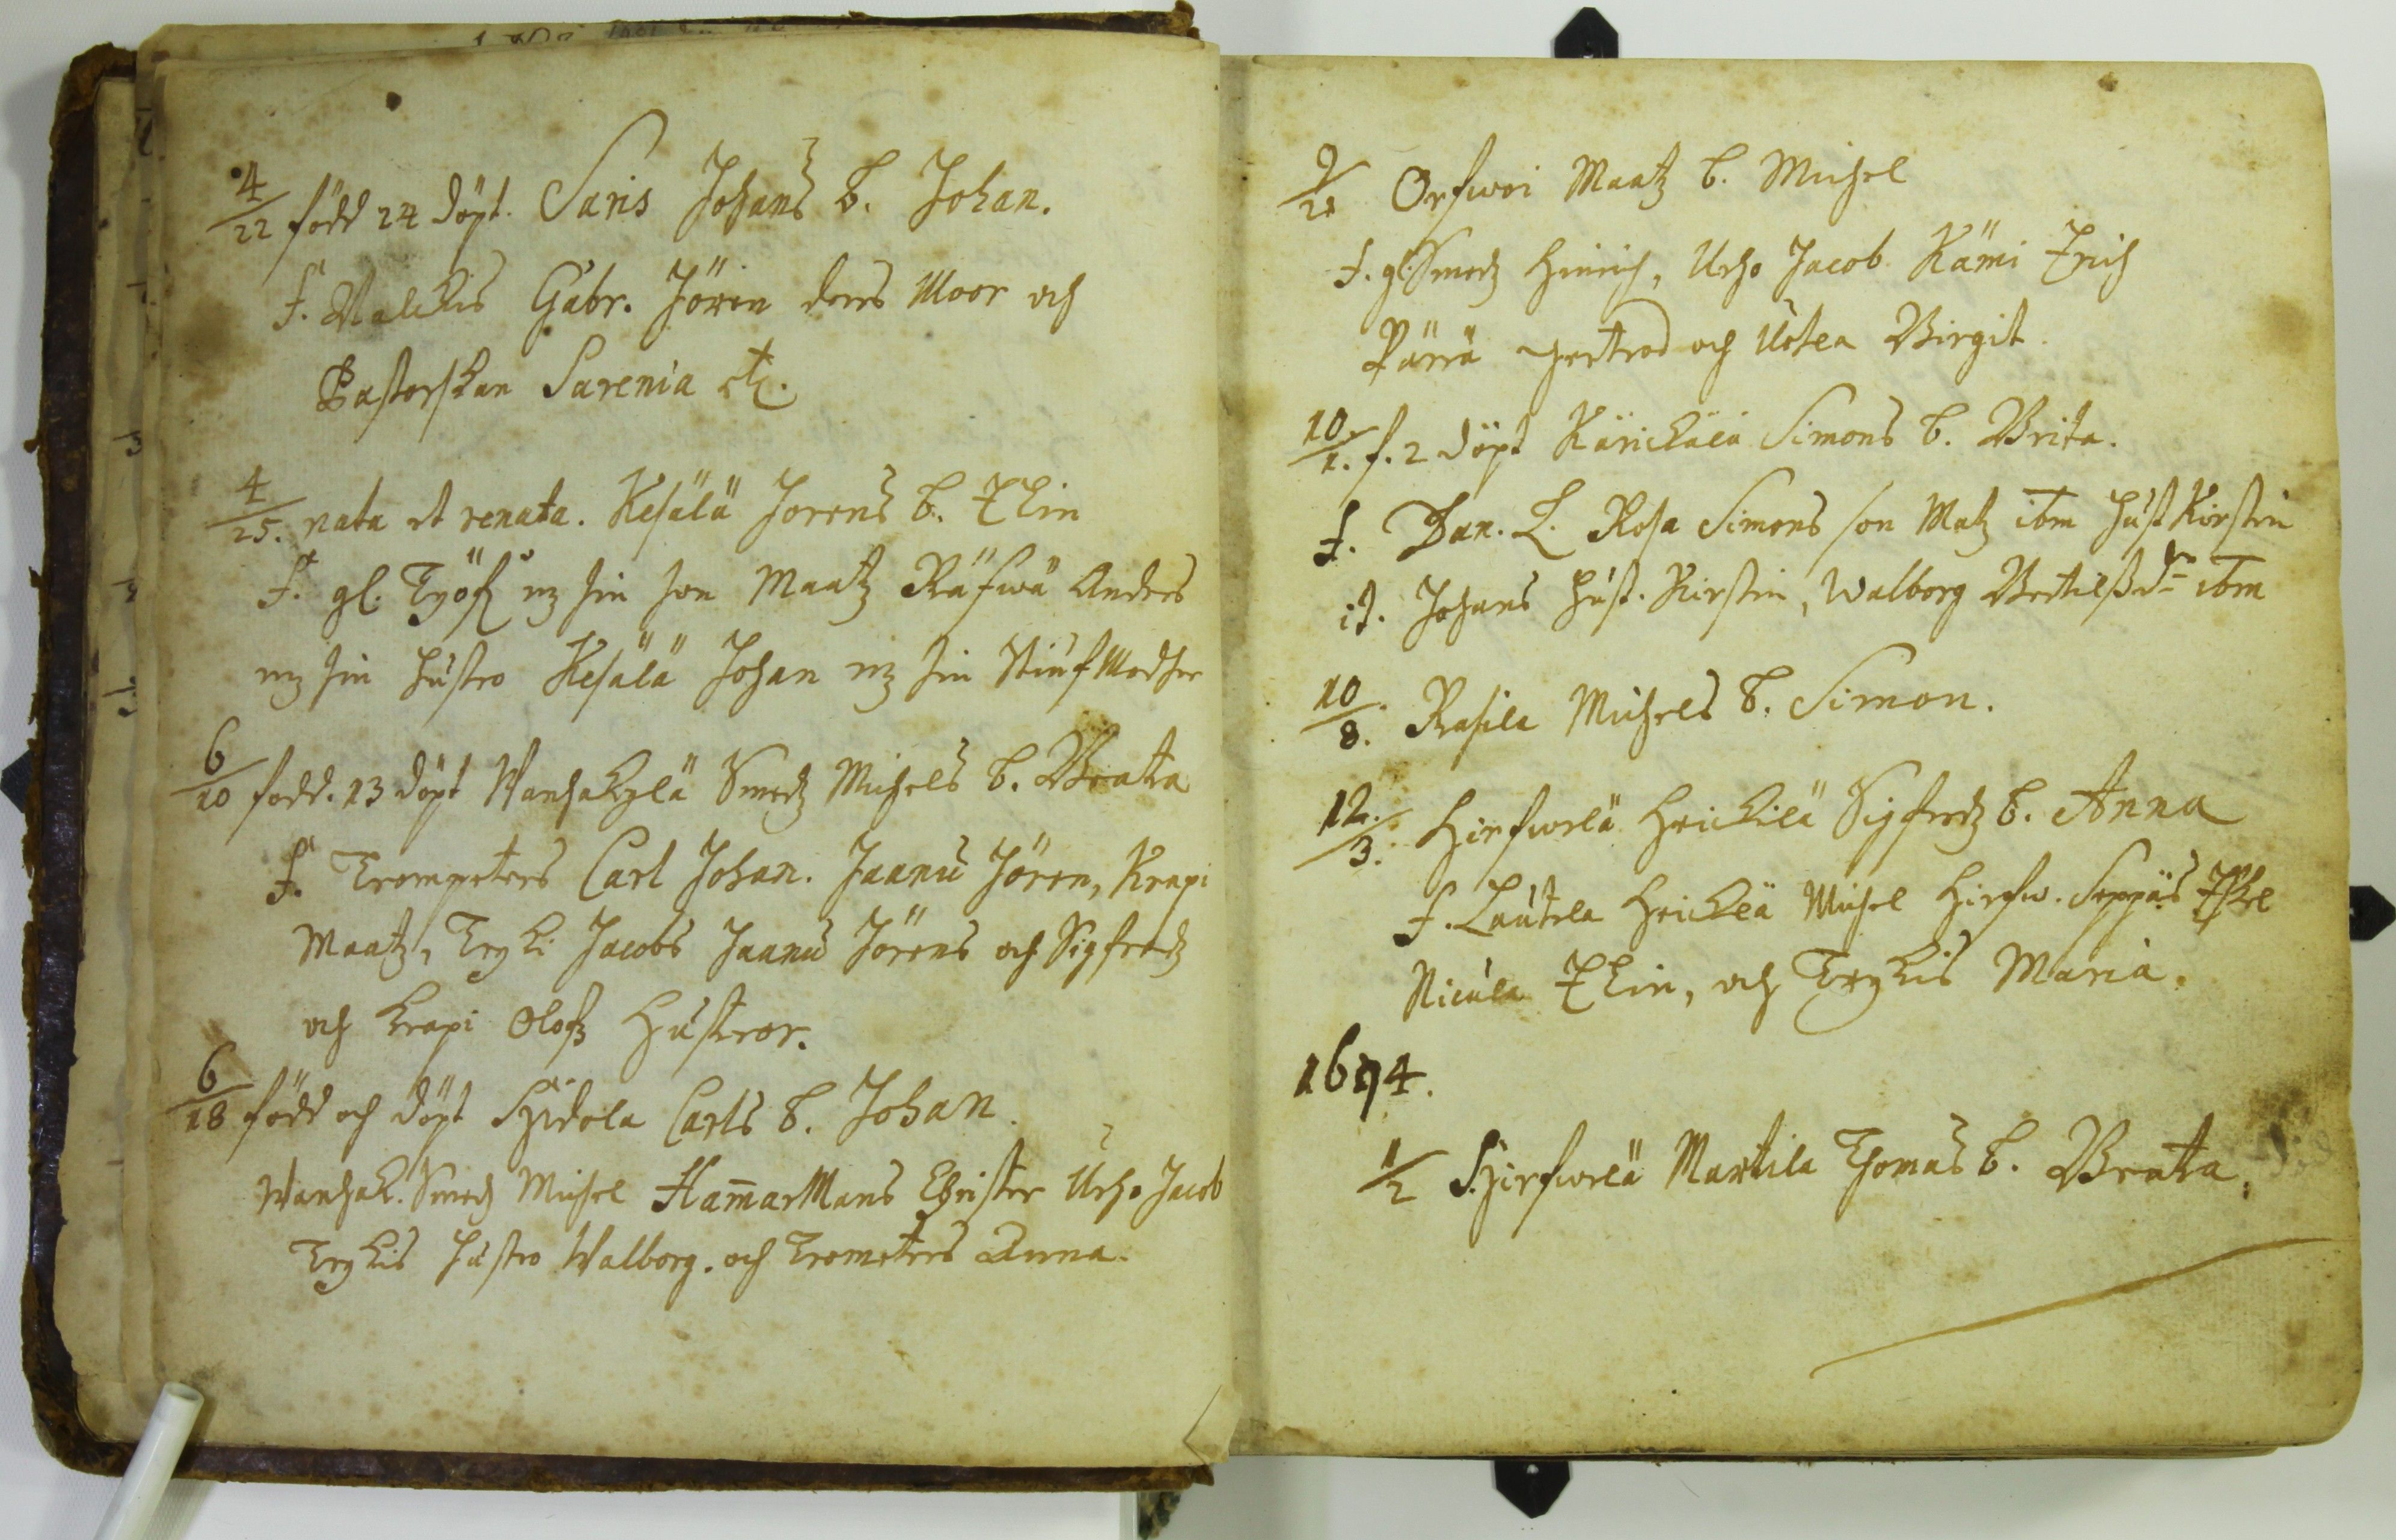 4/22 född 24 döpt. Saris Johans b. Johan.
f. Walckis Gabr. Jören ders Moor och
Pastorskan Sarenia etc.
4/25. nata et renata. Kesälä Jörens b. Elin
f. gl. Työf mz sin son Maatz Räfwä Anders
mz sin hustro Kesälä Johan mz sin StiufModher
6/10 född. 13 döpt Wanhakylä Smedz Michels b. Beata
f. Trompeters Carl Johan. Jaanu Jören, Krapi
Maatz, Tryki Jacobs Jaanu Jörens och Sigfredz
och Krapi Olofz Hustror.
6/18 född och döpt Hidola Carls b. Johan.
Wanhak. Smedz Michel HammarMans Christer Urho Jacob
Trykis hustro Walborg. och Trometers Anna.
9/21 Orfwoi Maatz b. Michel
f. gl. Smedz Hinrich, Urho Jacob Kämi Erich
Pärrä Gertrod och Uotla Birgit.
10/1. f. 2 döpt Kärickälä Simons b. Brita.
f. Dan. L. Rosa Simons son Matz ibm hust Kirstin
it. Johans hust. Kirstin, Walborg Bertilsdr ibm
10/8. Rasila Michels b. Simon.
12./3. Hirfwelä Heickilä Sigfredz b. Anna
f. Lautela Heickilä Michel Hirfw. Seppäs
Nicula Elin, och Trykis Maria.
1694.
1/2 Hirfwelä Martila Thomas b. Beata.